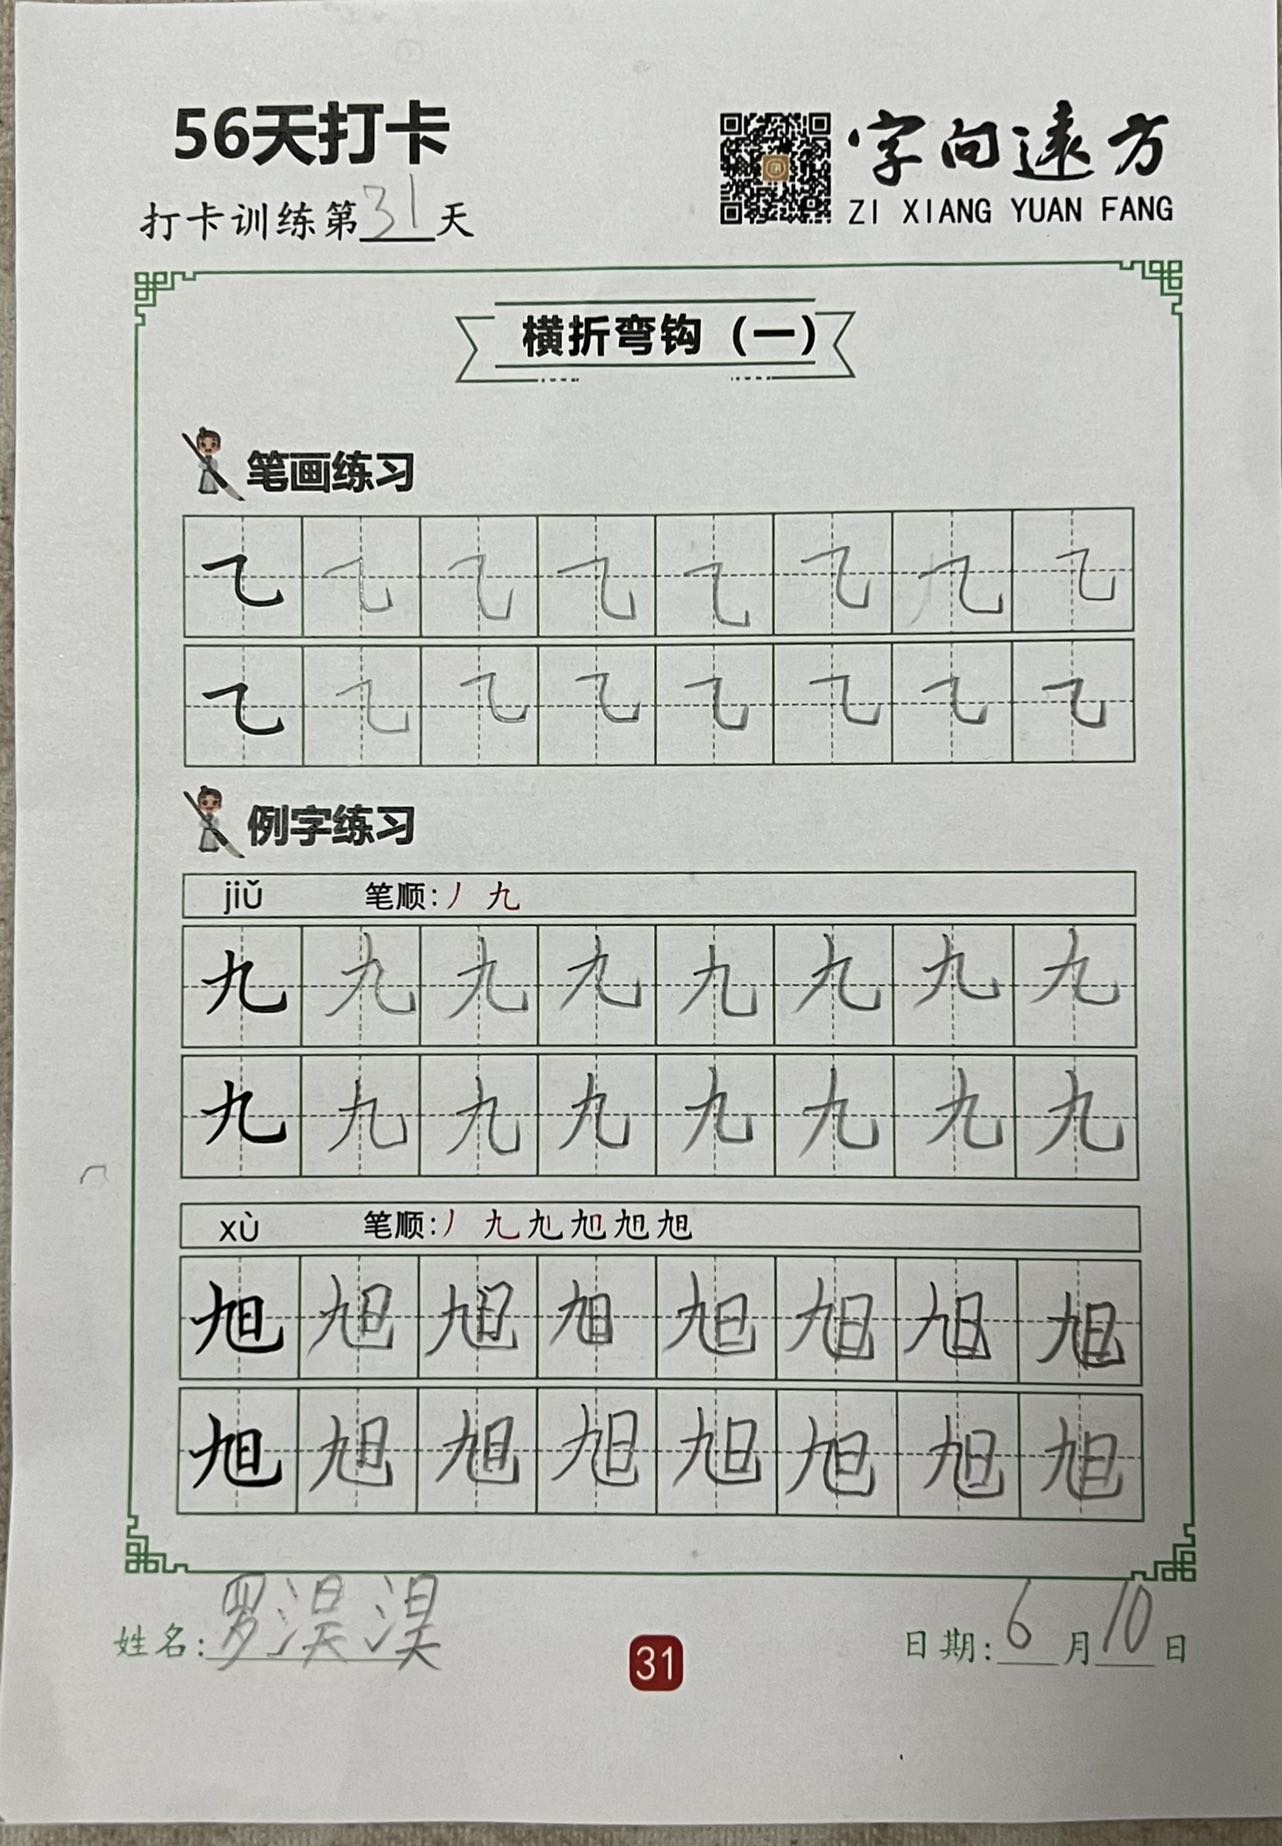 56天打卡
字向遠方
ZI XIANG YUAN FANG
打卡训练第31天
横折弯钩（一）
笔画练习
乁 乁 乁 乁 乁 乁 乁 乁
乁 乁 乁 乁 乁 乁 乁 乁
例字练习
jiǔ 笔顺:丿 九
九 九 九 九 九 九 九 九
九 九 九 九 九 九 九 九
xù 笔顺:丿 九
旭 旭 旭 旭 旭 旭 旭 旭
旭 旭 旭 旭 旭 旭 旭 旭
姓名:罗淏淏
31
日期:6月10日